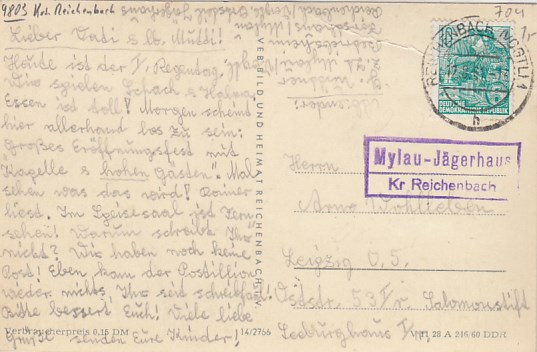 9803 Krs. Reichenbach
704
Lieber Vati & lb. Mutti!
Heute ist der V. Regentag.
Wir spielen Schach &
Essen ist toll! Morgen scheint
hier allerhand los zu sein:
Großes Eröffnungsfest mit
Kapelle & hohen Gästen. Mal
sehen was das wird! Rainer
liest. Im Speisesaal ist Fern
sehen! Warum schreibt Ihr
nicht? Wir haben noch keine
Post! Eben kam der Postillion
wieder nichts. Ihr seid schreibfaul!
Bitte bessert Euch! Viele liebe
Grüße senden Eure Kinder!
Absender:
VERBILD UND HEIMAT REICHENBACH
DEUTSCHE
DEMOKRATISCHE REPUBLIK
REICHENBACH (VOGTL) 1
h
Mylau-Jägerhaus
Kr Reichenbach
Herrn
Arno Wohlleben
Leipzig O.5.
Oststr. 53 Salomonstift
Verbraucherpreis 0,15 DM
14/2766
28 A 246/60 DDR